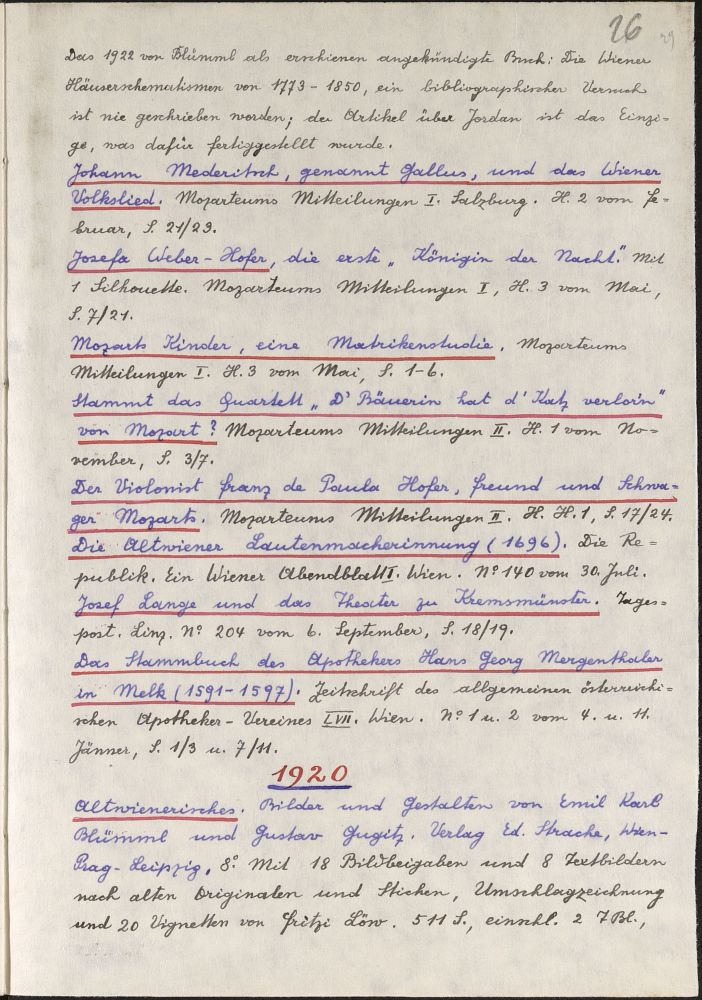 26
29
Das 1922 von Blümml als erschienen angekündigte Buch: Die Wiener
Häuserschematismen von 1773 - 1850, ein bibliographischer Versuch
ist nie geschrieben worden; der Artikel über Jordan ist das Einzi=
ge, was dafür fertiggestellt wurde.
Johann Mederitsch, genannt Gallus, und das Wiener
Volkslied. Mozarteums Mitteilungen I. Salzburg. H. 2 vom Fe=
bruar, S. 21/23.
Josefa Weber-Hofer, die erste „Königin der Nacht." Mit
1 Silhouette. Mozarteums Mitteilungen I, H. 3 vom Mai,
S. 7/21.
Mozarts Kinder, eine Matrikenstudie. Mozarteums
Mitteilungen I. H. 3 vom Mai, S. 1-6.
Stammt das Quartett „D' Bäuerin hat d' Katz verlor'n"
von Mozart? Mozarteums Mitteilungen II. H. 1 vom No=
vember, S. 3/7.
Der Violonist Franz de Paula Hofer, Freund und Schwa=
ger Mozarts. Mozarteums Mitteilungen II. H. H. 1, S. 17/24.
Die Altwiener Lautenmacherinnung (1696). Die Re=
publik. Ein Wiener Abendblatt I. Wien. No 140 vom 30. Juli.
Josef Lange und das Theater zu Kremsmünster. Tages=
post. Linz. No 204 vom 6. September, S. 18/19.
Das Stammbuch des Apothekers Hans Georg Mergenthaler
in Melk (1591-1597). Zeitschrift des allgemeinen österreichi=
schen Apotheker-Vereines LVII. Wien. No 1 u. 2 vom 4. u. 11.
Jänner, S. 1/3 u. 7/11.
1920
Altwienerisches. Bilder und Gestalten von Emil Karl
Blümml und Gustav Gugitz. Verlag Ed. Strache, Wien-
Prag-Leipzig, 8o. Mit 18 Bildbeigaben und 8 Textbildern
nach alten Originalen und Stichen, Umschlagzeichnung
und 20 Vignetten von Fritzi Löw. 511 S., einschl. 2 7 Bl.,